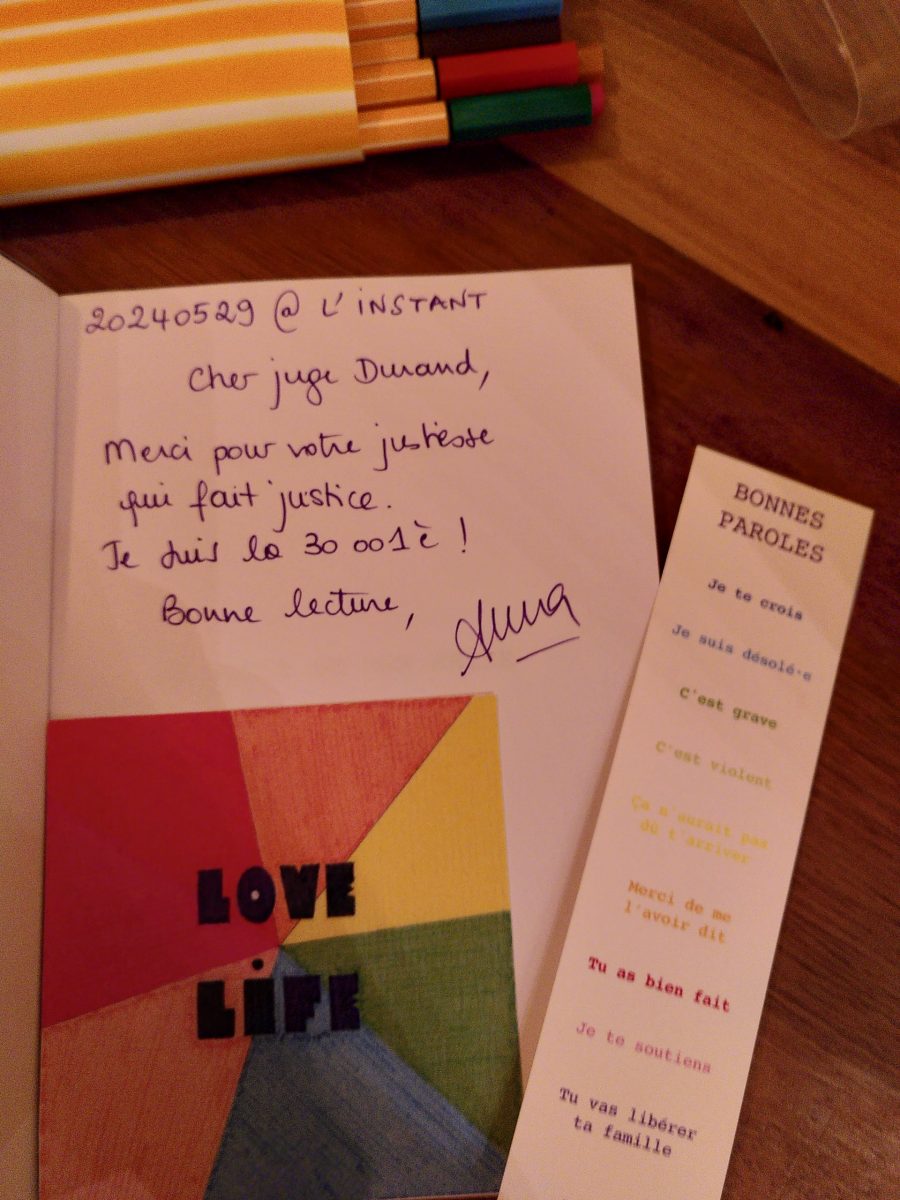 20240529 @ L'INSTANT
Cher juge Durand,
Merci pour votre justesse
qui fait justice.
Je suis la 30 001è !
Bonne lecture,
Anna
LOVE
LiFE
BONNES
PAROLES
Je te crois
Je suis désolé·e
C'est grave
C'est violent
Ça n'aurait pas
dû t'arriver
Merci de me
l'avoir dit
Tu as bien fait
Je te soutiens
Tu vas libérer
ta famille